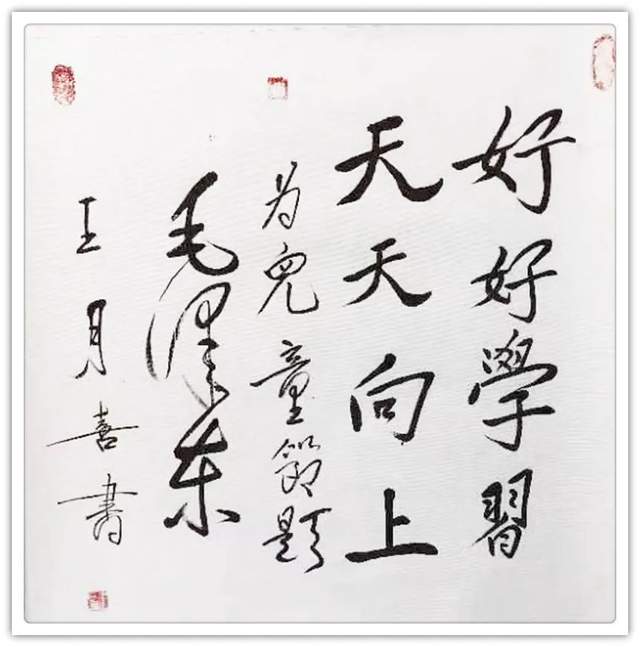 好好學習
天天向上
为兒童節題
毛澤东
王月喜書